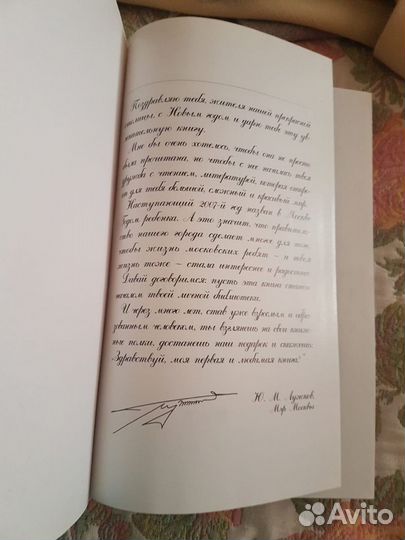 Поздравляю тебя, жителя нашей прекрасной
столицы, с Новым годом и дарю тебе эту ув
лекательную книгу.
Мне бы очень хотелось, чтобы она не просто
была прочитана, но чтобы с нее началась твоя
дружба с чтением, литературой, которая откро
ет для тебя большой, сложный и красивый мир.
Наступающий 2007-й год назван в Москве
Годом ребенка. А это значит, что правитель
ство нашего города сделает много для того,
чтобы жизнь московских ребят – и твоя
жизнь тоже – стала интереснее и радостнее.
Давай договоримся: пусть эта книга станет
началом твоей личной библиотеки.
И через много лет, став уже взрослым и обра
зованным человеком, ты взглянешь на свои книж
ные полки, достанешь наш подарок и скажешь:
"Здравствуй, моя первая и любимая книга!"
Ю. М. Лужков,
Мэр Москвы
Avito